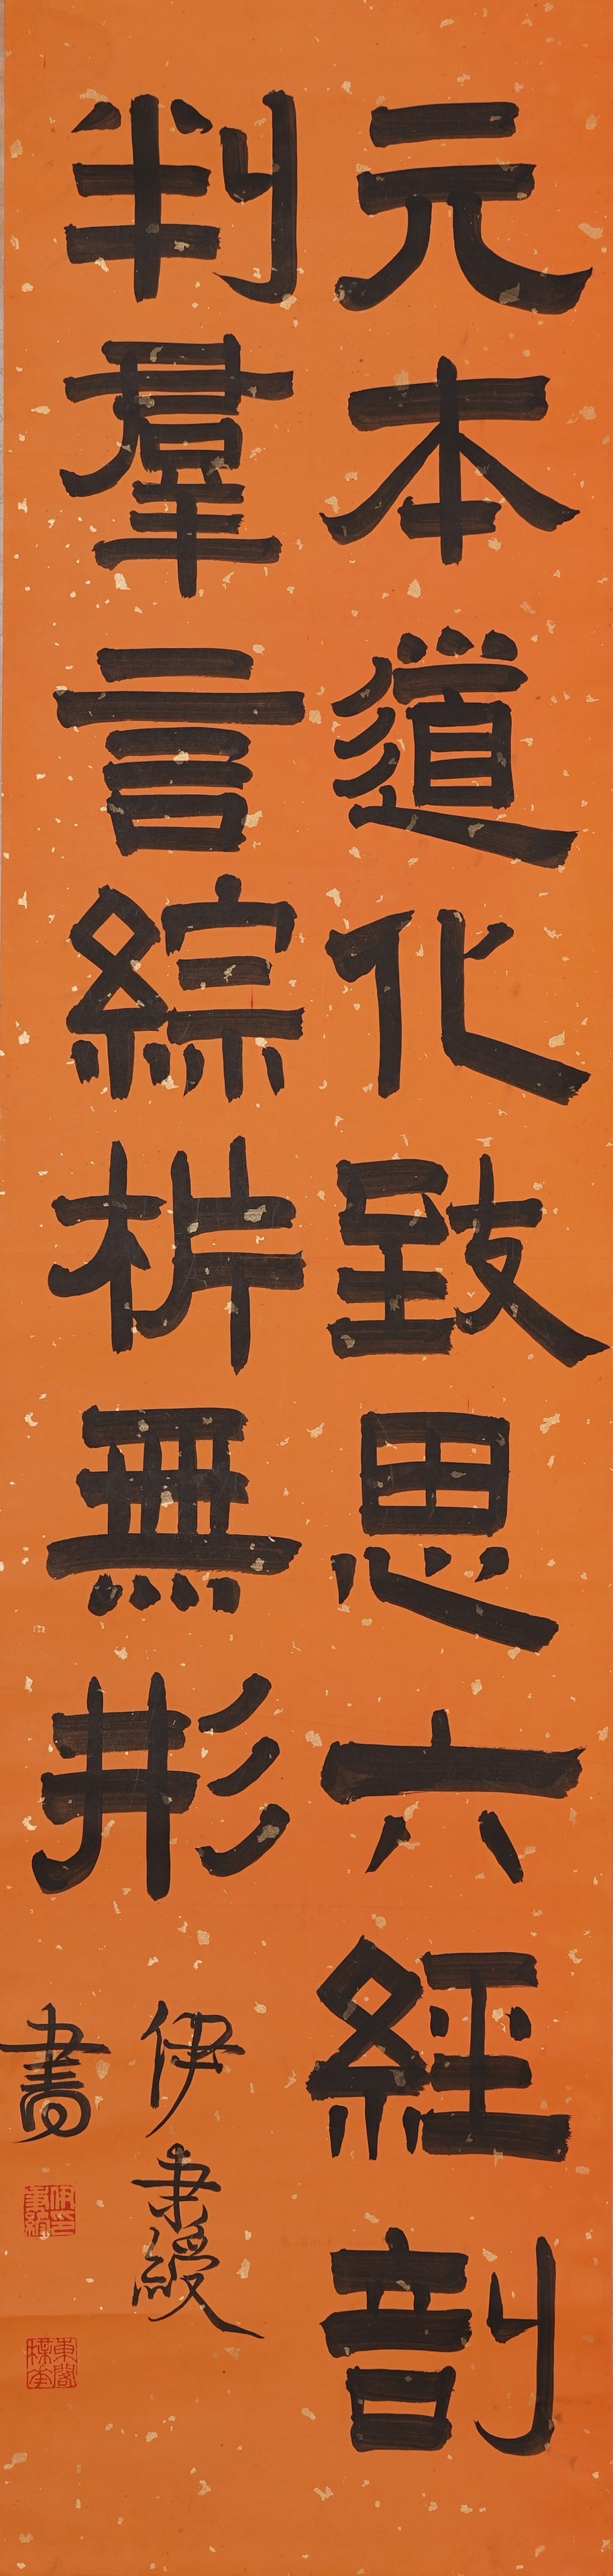 元本道化致思六經剖
判羣言綜析無形
伊秉綬
書